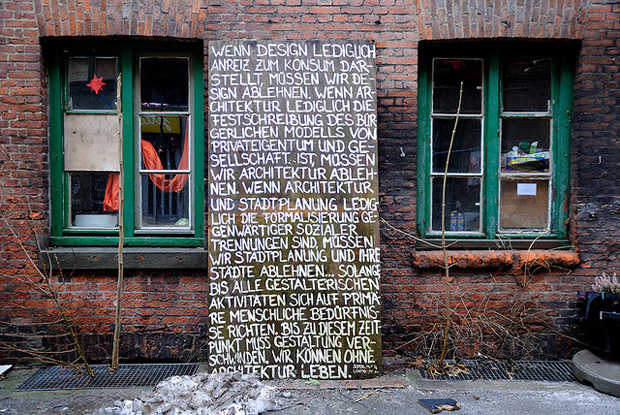 WENN DESIGN LEDIGLICH
ANREIZ ZUM KONSUM DAR-
STELLT, MÜSSEN WIR DE
SIGN ABLEHNEN. WENN AR-
CHITEKTUR LEDIGLICH DIE
FESTSCHREIBUNG DES BÜR-
GERLICHEN MODELLS VON
PRIVATEIGENTUM UND GE-
SELLSCHAFT. IST, MÜSSEN
WIR ARCHITEKTUR ABLEH-
NEN. WENN ARCHITEKTUR
UND STADTPLANUNG LEDIG-
LICH DIE FORMALISIERUNG GE-
GENWÄRTIGER SOZIALER
TRENNUNGEN SIND, MÜSSEN
WIR STADTPLANUNG UND IHRE
STÄDTE ABLEHNEN... SOLANGE
BIS ALLE GESTALTERISCHEN
AKTIVITÄTEN SICH AUF PRIMÄ-
RE MENSCHLICHE BEDÜRFNIS-
SE RICHTEN. BIS ZU DIESEM ZEIT-
PUNKT MUSS GESTALTUNG VER-
SCHWINDEN. WIR KÖNNEN OHNE
ARCHITEKTUR LEBEN.